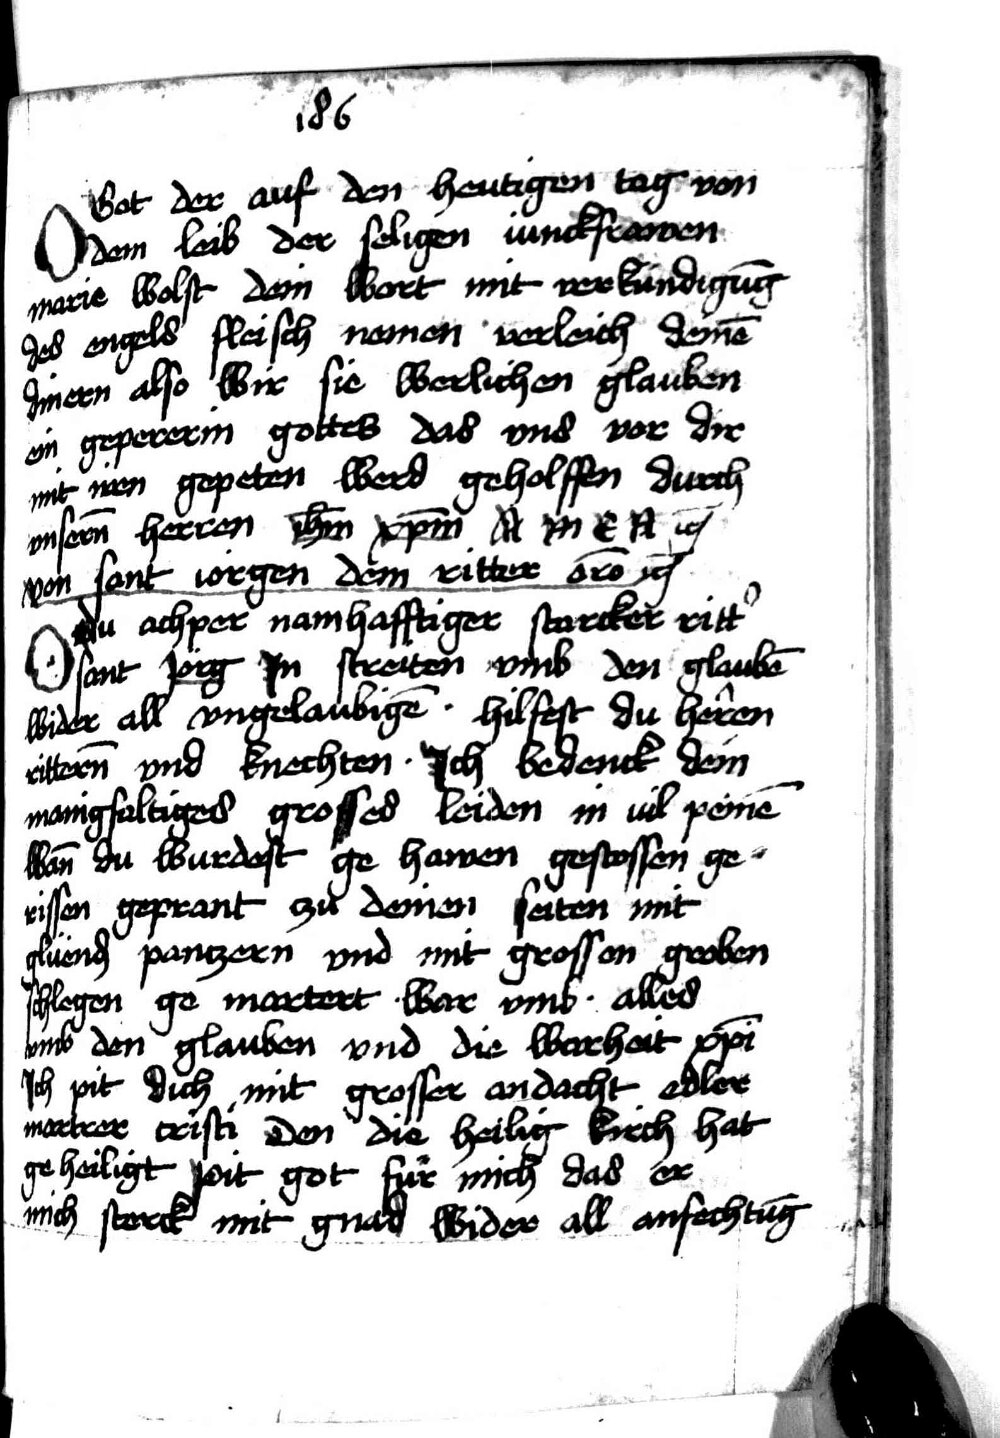 186
O Got der auf den heutigen tag von
dem leib der seligen iunckfrawen
marie wolst dein wort mit verkundigūg
des engels fleisch nemen verleich deinē
dinern also wir sie werlichen glauben
ein gepererin gottes das vns vor dir
mit iren gepeten werd geholffen durch
vnsern̄ herren ihm̄ xpm̄ A M E N
von sant iorgen dem ritter oro
O du achper namhafftiger starcker ritt'
sant Jorg In streiten vmb den glaubē
wider all vngelaubigē · hilfest du herren
rittern̄ vnd knechten · Ich bedenck dein
manigfaltiges grosses leiden in vil peinē
wan̄ du wurdest ge hawen gestossen ge-
rissen geprant zu deinen seiten mit
gluend pantzern vnd mit grossen groben
schlegen ge martert · war vmb · alles
vmb den glauben vnd die warheit xp̄i
Ich pit dich mit grosser andacht edler
martrer cristi Den die heilig kirch hat
ge heiligt pit got für mich das er
mich sterck mit gnad wider all anfechtūg